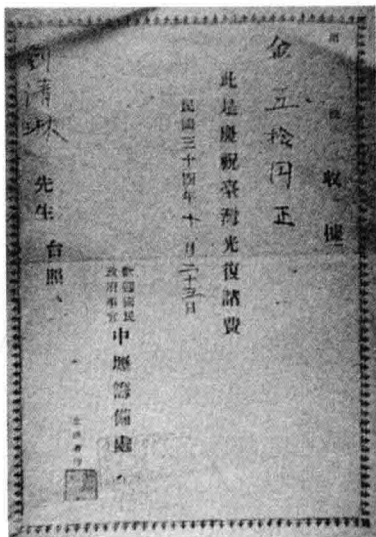 收據
金 五拾円正
此是慶祝臺灣光復諸費
民國三十四年十月二十五日
歡迎國民
政府軍官
中壢籌備處
劉清琳 先生 台照